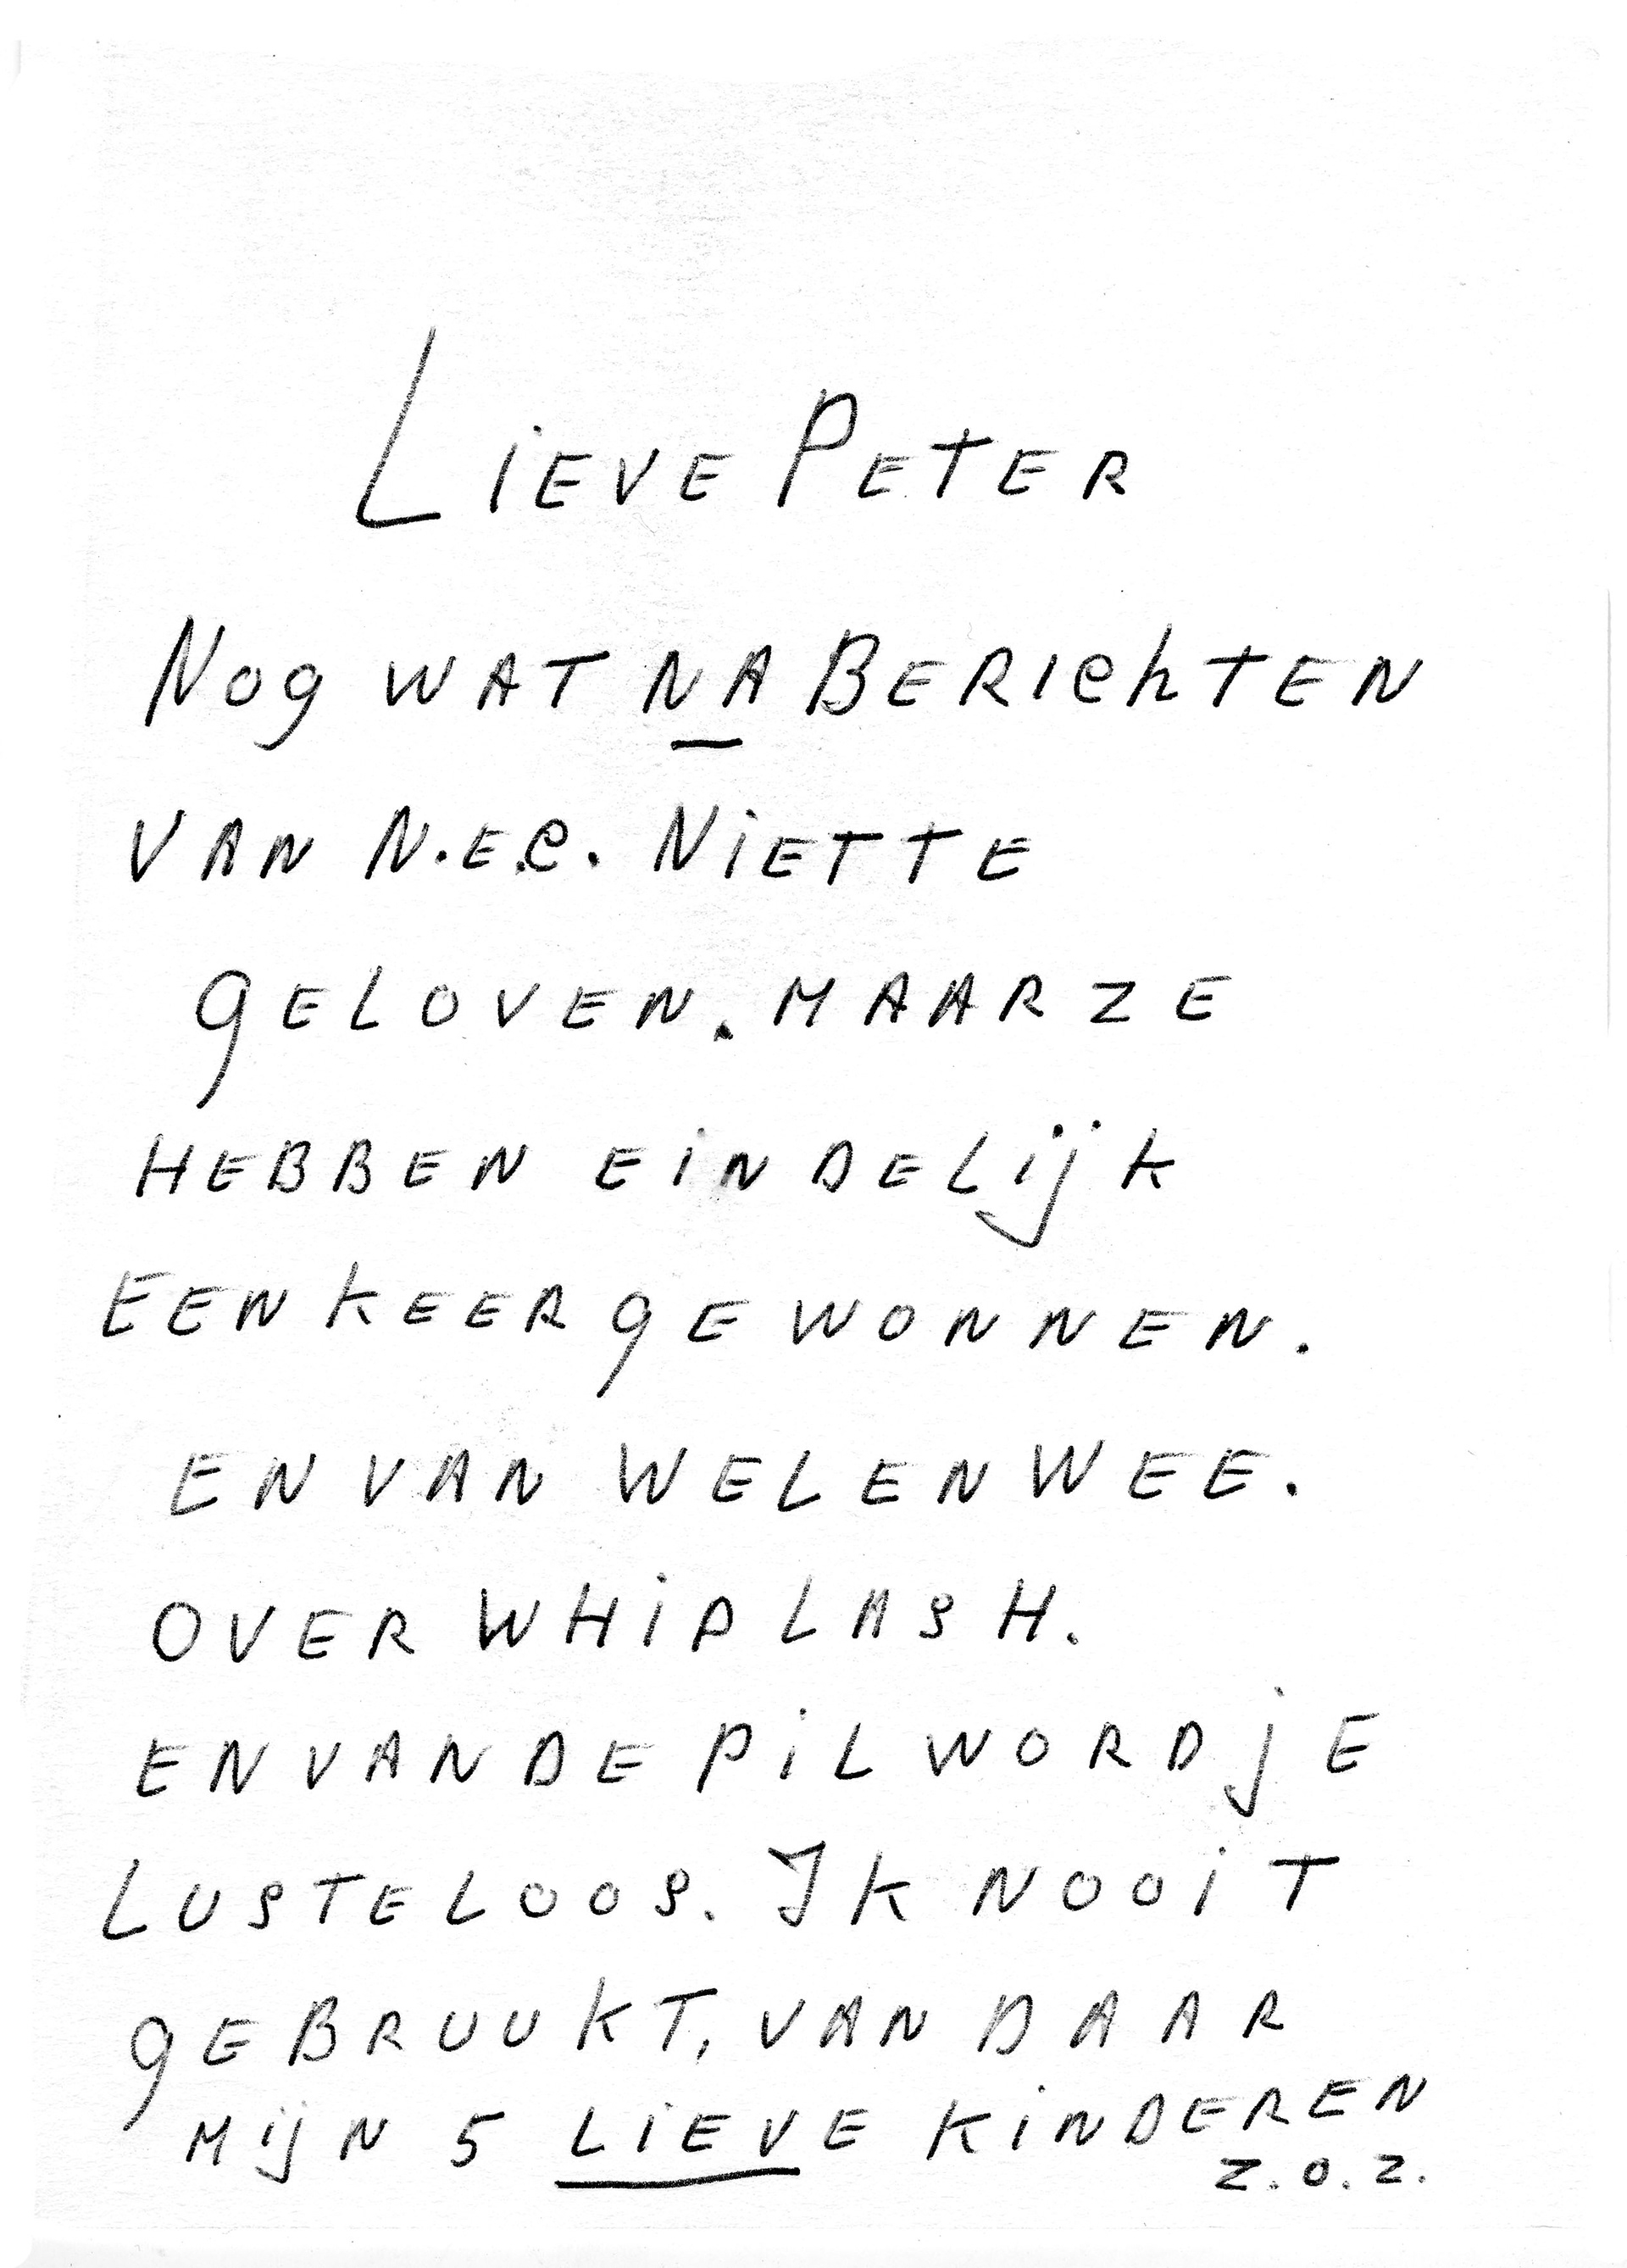 LIEVE PETER
NOG WAT NA BERICHTEN
VAN N.E.C. NIET TE
GELOVEN. MAAR ZE
HEBBEN EINDELijK
EEN KEER GEWONNEN.
EN VAN WEL EN WEE.
OVER WHIPLASH.
EN VAN DE PIL WORD jE
LUSTELOOS. IK NOOIT
GEBRUUKT, VAN DAAR
MijN 5 LIEVE KINDEREN
Z.O.Z.